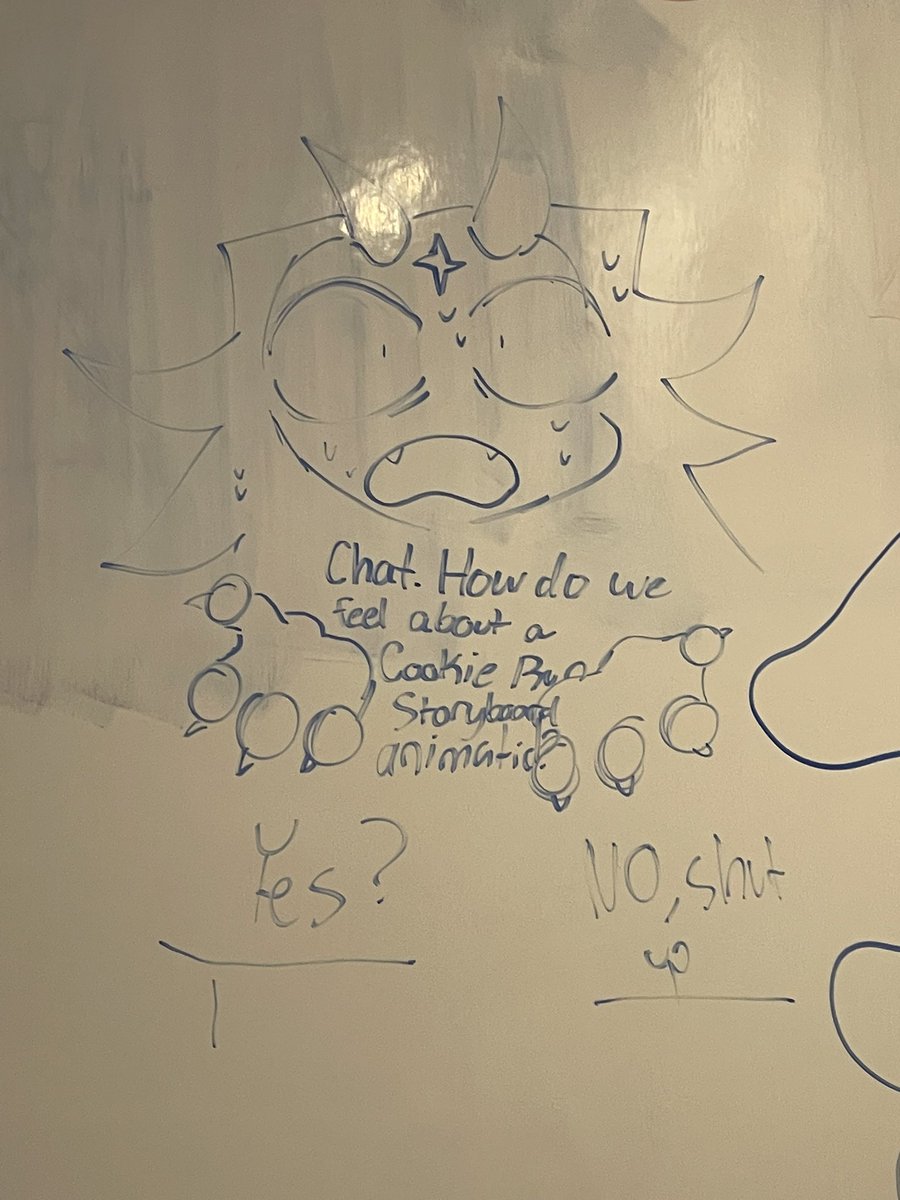 Chat. How do we
feel about a
Cookie Run
Storyboard
animatic?
Yes?
NO, shut
up